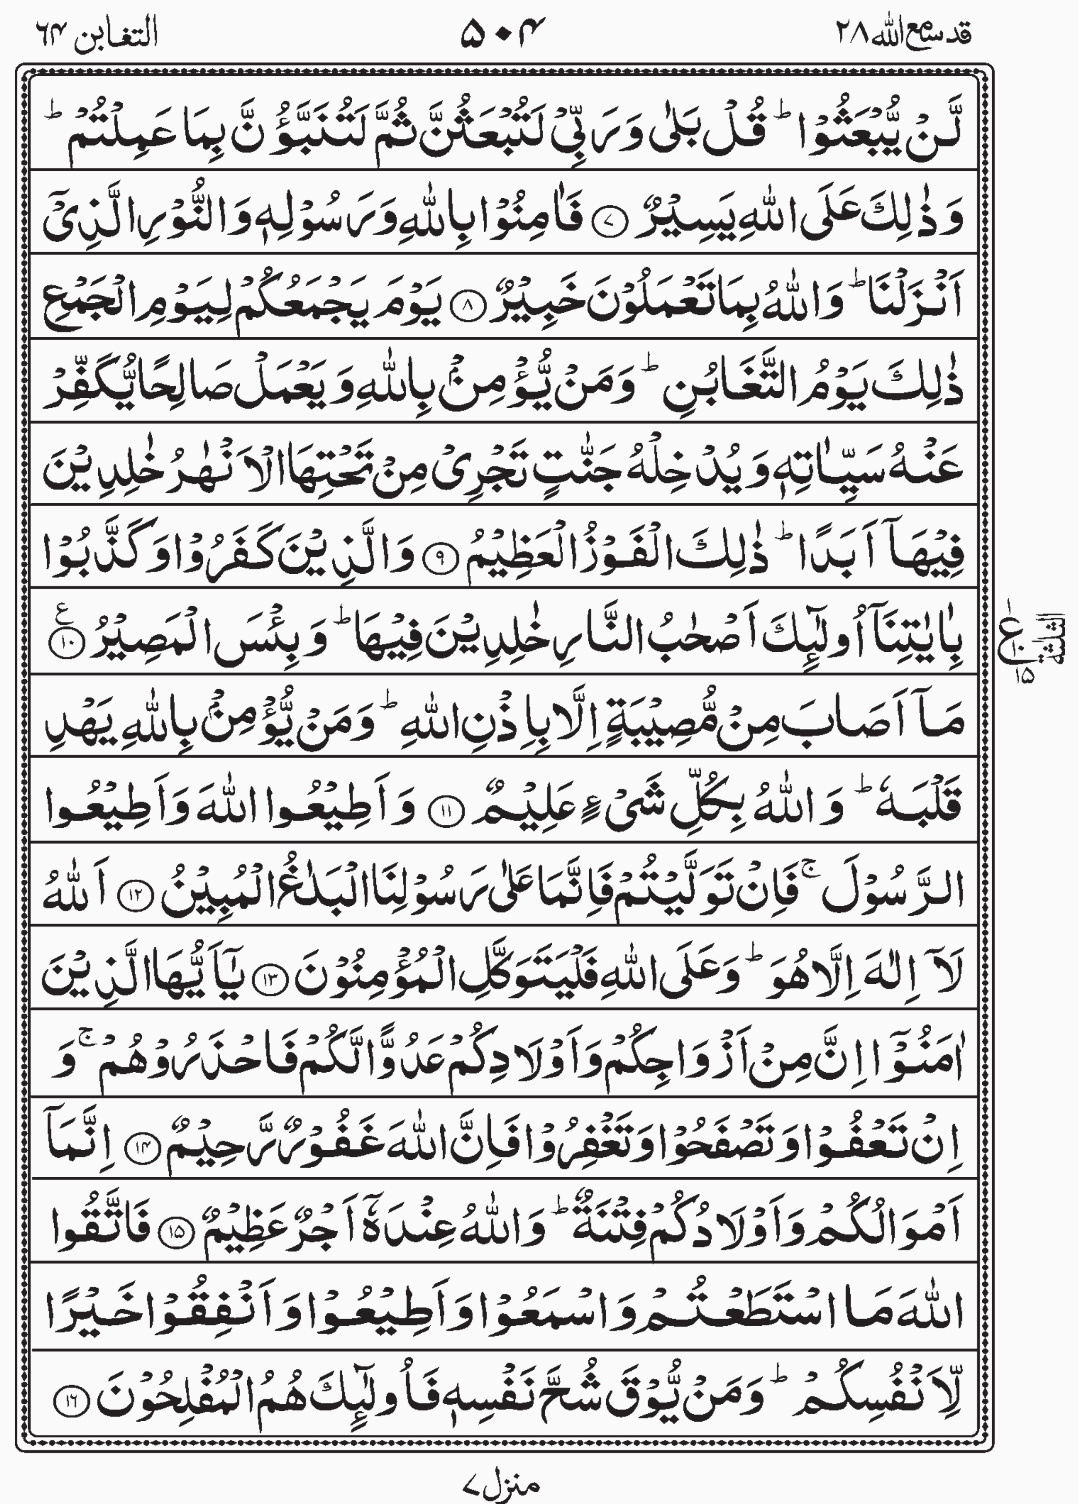 قد سمع الله ٢٨
٥٠٤
التغابن ٦٤
لَّنْ يُّبْعَثُوْا ؕ قُلْ بَلٰى وَ رَبِّيْ لَتُبْعَثُنَّ ثُمَّ لَتُنَبَّؤُنَّ بِمَا عَمِلْتُمْ ؕ
وَ ذٰلِكَ عَلَى اللّٰهِ يَسِيْرٌ ﴿٧﴾ فَاٰمِنُوْا بِاللّٰهِ وَ رَسُوْلِهٖ وَ النُّوْرِ الَّذِيْۤ
اَنْزَلْنَا ؕ وَ اللّٰهُ بِمَا تَعْمَلُوْنَ خَبِيْرٌ ﴿٨﴾ يَوْمَ يَجْمَعُكُمْ لِيَوْمِ الْجَمْعِ
ذٰلِكَ يَوْمُ التَّغَابُنِ ؕ وَ مَنْ يُّؤْمِنْۢ بِاللّٰهِ وَ يَعْمَلْ صَالِحًا يُّكَفِّرْ
عَنْهُ سَيِّاٰتِهٖ وَ يُدْخِلْهُ جَنّٰتٍ تَجْرِيْ مِنْ تَحْتِهَا الْاَنْهٰرُ خٰلِدِيْنَ
فِيْهَاۤ اَبَدًا ؕ ذٰلِكَ الْفَوْزُ الْعَظِيْمُ ﴿٩﴾ وَ الَّذِيْنَ كَفَرُوْا وَ كَذَّبُوْا
بِاٰيٰتِنَاۤ اُولٰٓئِكَ اَصْحٰبُ النَّارِ خٰلِدِيْنَ فِيْهَا ؕ وَ بِئْسَ الْمَصِيْرُ ﴿١٠﴾ ع
مَاۤ اَصَابَ مِنْ مُّصِيْبَةٍ اِلَّا بِاِذْنِ اللّٰهِ ؕ وَ مَنْ يُّؤْمِنْۢ بِاللّٰهِ يَهْدِ
قَلْبَهٗ ؕ وَ اللّٰهُ بِكُلِّ شَيْءٍ عَلِيْمٌ ﴿١١﴾ وَ اَطِيْعُوا اللّٰهَ وَ اَطِيْعُوا
الرَّسُوْلَ ۚ فَاِنْ تَوَلَّيْتُمْ فَاِنَّمَا عَلٰى رَسُوْلِنَا الْبَلٰغُ الْمُبِيْنُ ﴿١٢﴾ اَللّٰهُ
لَاۤ اِلٰهَ اِلَّا هُوَ ؕ وَ عَلَى اللّٰهِ فَلْيَتَوَكَّلِ الْمُؤْمِنُوْنَ ﴿١٣﴾ يٰۤاَيُّهَا الَّذِيْنَ
اٰمَنُوْۤا اِنَّ مِنْ اَزْوَاجِكُمْ وَ اَوْلَادِكُمْ عَدُوًّا لَّكُمْ فَاحْذَرُوْهُمْ ۚ وَ
اِنْ تَعْفُوْا وَ تَصْفَحُوْا وَ تَغْفِرُوْا فَاِنَّ اللّٰهَ غَفُوْرٌ رَّحِيْمٌ ﴿١٤﴾ اِنَّمَاۤ
اَمْوَالُكُمْ وَ اَوْلَادُكُمْ فِتْنَةٌ ؕ وَ اللّٰهُ عِنْدَهٗۤ اَجْرٌ عَظِيْمٌ ﴿١٥﴾ فَاتَّقُوا
اللّٰهَ مَا اسْتَطَعْتُمْ وَ اسْمَعُوْا وَ اَطِيْعُوْا وَ اَنْفِقُوْا خَيْرًا
لِّاَنْفُسِكُمْ ؕ وَ مَنْ يُّوْقَ شُحَّ نَفْسِهٖ فَاُولٰٓئِكَ هُمُ الْمُفْلِحُوْنَ ﴿١٦﴾
١
ع
١٠
١٥
الثلثة
منزل ٧